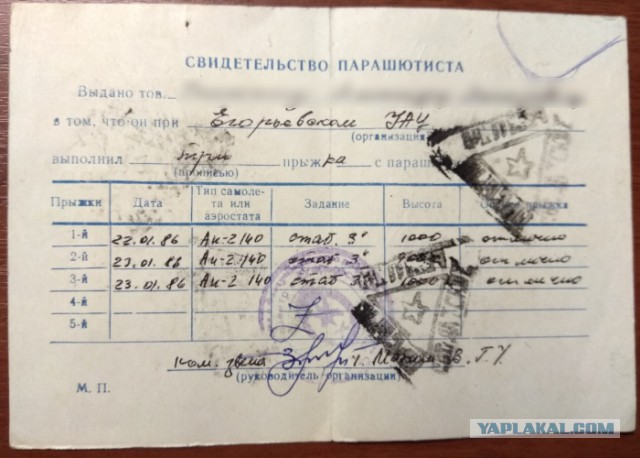 СВИДЕТЕЛЬСТВО ПАРАШЮТИСТА
Выдано тов.
в том, что он при Егорьевском УАЦ
(организация
выполнил три прыжка с параш
(прописью)
Прыжки Дата Тип самоле-та или аэростата Задание Высота прыжка
1-й 22.01.86 Ан-2/140 стаб. 3" 1000 отлично
2-й 23.01.86 Ан-2/140 стаб 3" отлично
3-й 23.01.86 Ан-2/140 стаб 3 1000 отлично
4-й
5-й
ком. звена
(руководитель организации)
М. П.
YAPLAKAL.COM